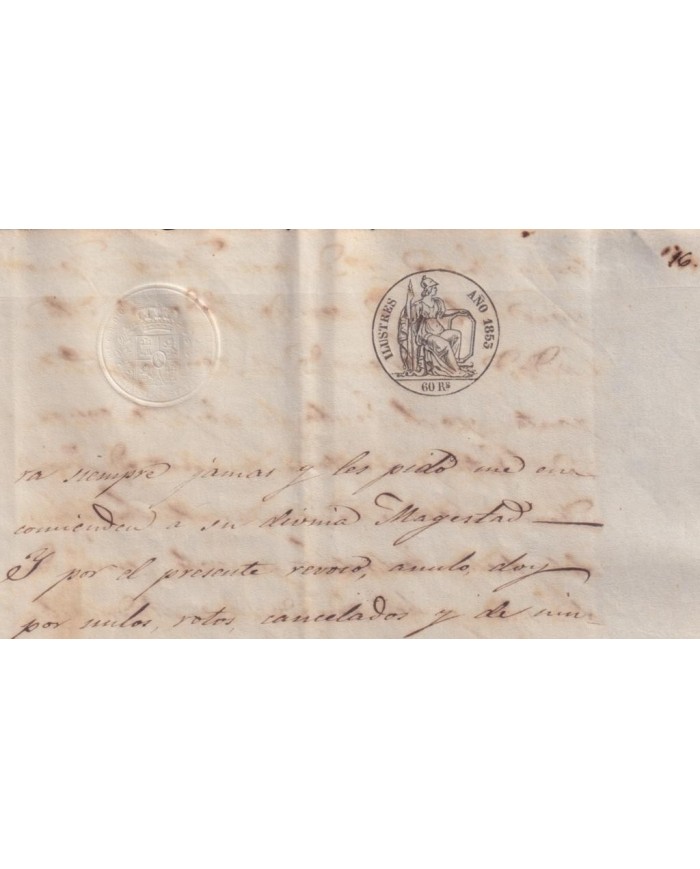 16.
ILUSTRES AÑO 1853
60 Rs
ra siempre jamas y les pido me en=
comienden a su divina Magestad —
Y por el presente revoco, anulo, doy
por nulos, rotos, cancelados y de nin=